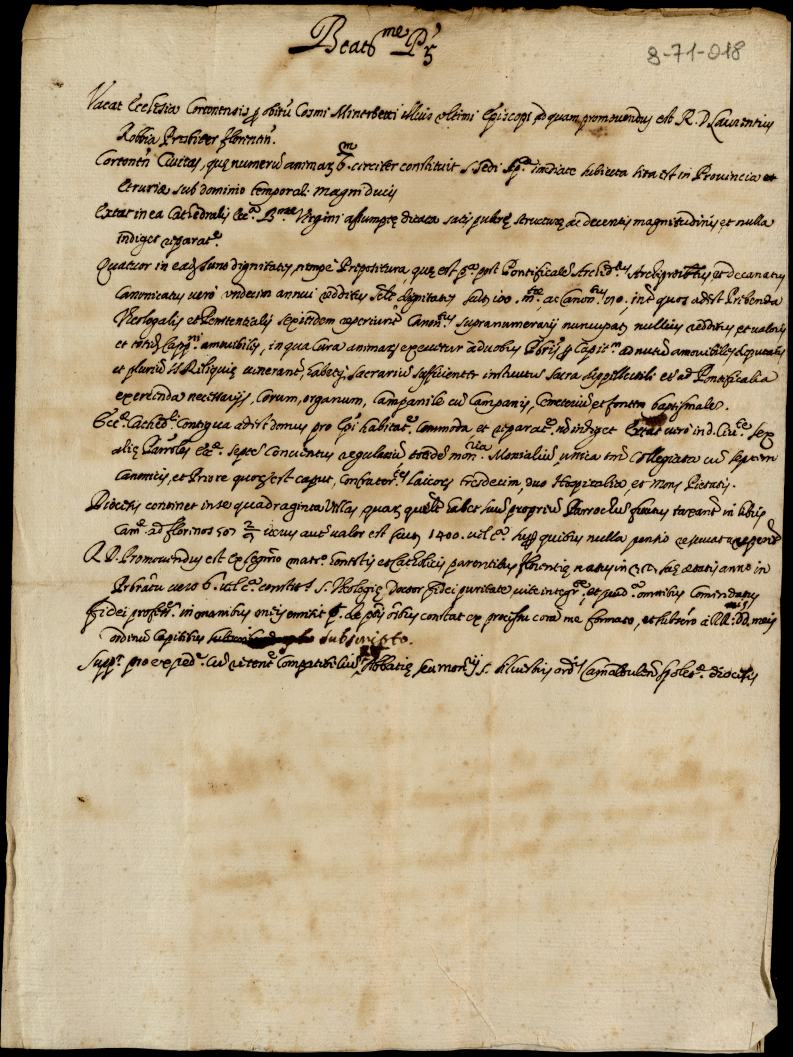 Beatme Pr
8-71-018
Vacat Ecclesia Cortonensis p obitū Cosmi Minerbetti illius ultimi Episcopi, ad quam promovendus est R. D. Laurentius
Robbia Presbiter florentin.
Cortonen Civitas, quę numerū animarz 6.m circiter constituit S. Sedi Apca imediate subiecta sita est in Provincia et
etruriae sub dominio temporal. magni ducis
Extat in ea Cathedralis Ecca. Bmae Virgini assumptę dicata satis pulcrę structurae ac decentis magnitudinis et nulla
indiget reparate.
Quatuor in eadz sunt dignitates, nempe Prepositura, quę est pa. post Pontificalē Archidtus Archipresbtus, et decanatus
Canonicatus vero undecim annui redditus dignitatis scut. 100. ac Canontus 70. intr quos adest Prebenda
Theologalis et Penitentialis sex itidem reperiunt Canontus supranumerarii nuncupati nullius redditus et valoris
et totidz Cappni amovibiles, in qua Cura animarz exercetur a duobus pbris p Capitm ad nutū amovibiles deputatis
et plurium SS Reliquię venerant, habetqz sacrariū sufficienter instructū sacra suppellectili et ad Pontificalia
exercenda necessariis, Corum, organum, Campanile cū Campanis, Cemeteriū et fontem baptismale.
Ecce. Cathedi. Contigua adest domus pro Epi habitate. Commoda et reparate. nō indiget Extat vero in d. Civte. sex
alię Parrolis Ecce. septē Conventus regulariū tredecim monria. Monialiū, unica tm Collegiata cū septem
Canonicis et Priore quorz est caput, Confraternes laicorz tresdecim, duo Hospitalia, et mons Pietatis.
Diocesis continet in se quadraginta Villas, quarz quelibet habet suū propriū Parrochū fructus taxant in libris
Came. ad florinos 507 2/3 verus autē valor est scut. 1400. vel ca. supr quibus nulla pensio reservata reperit
R. D. Promovendus est ex legmo matro. honestis et catholicis parentibus florentię natus in suę aetatis anno in
Prbratu vero 6. vel ca. constits S. Theologię Doctor fidei puritate vitę integre. et pred. omnibus Comendatus
fidei professm. in manibus meis emisit pt. de pdis oibus constat ex processu corā me formato, et subscro a RR: DD. meis
ordinū Capitibus subscripto.
Suppr. pro exped. cū retent. Compatibiliū Abbatię seu monrii S. Silvestris ordis Camaldulen spolet. diocesis